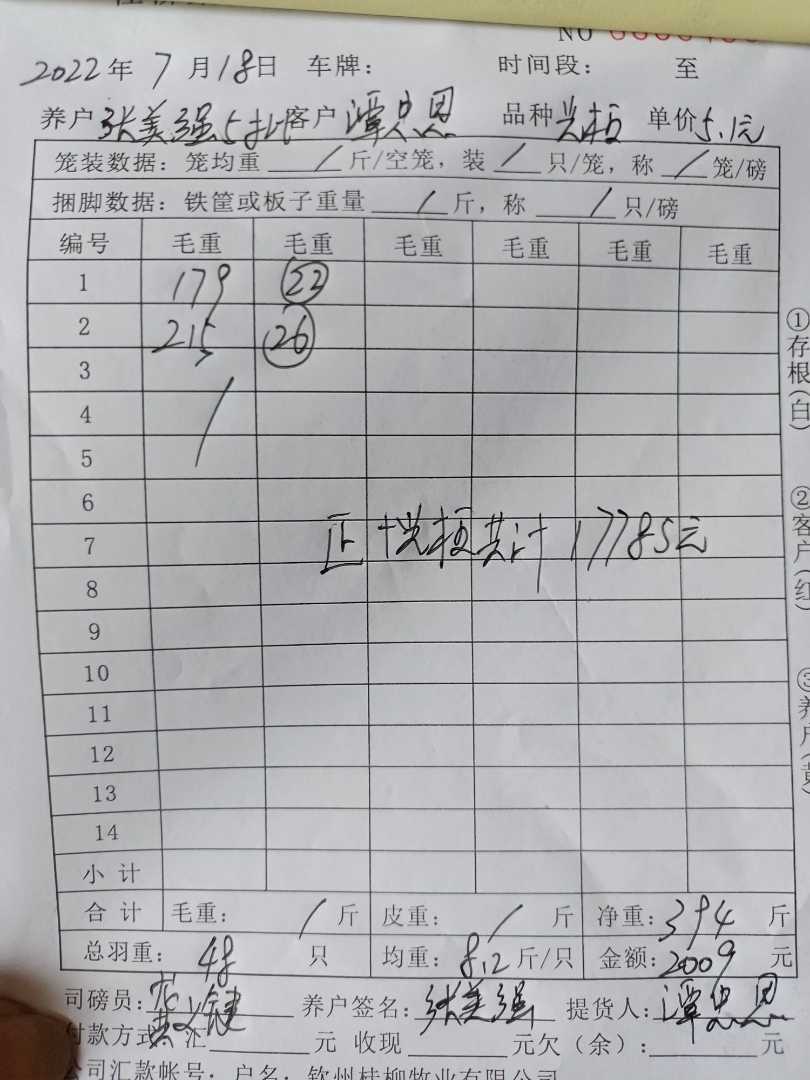 NO
2022年 7月18日 车牌: 时间段: 至
养户 张美强5批 客户 潭思恩 品种 单价5.1元
笼装数据: 笼均重 / 斤/空笼, 装 / 只/笼, 称 / 笼/磅
捆脚数据: 铁筐或板子重量 / 斤, 称 / 只/磅
编号 毛重 毛重 毛重 毛重 毛重 毛重
1 179 22
2 215 26
3
4 /
5
6
7 共计17785元
8
9
10
11
12
13
14
小计
合计 毛重: / 斤 皮重: / 斤 净重: 394 斤
总羽重: 48 只 均重: 8.2 斤/只 金额: 2009 元
司磅员: 养户签名: 张美强 提货人: 潭思恩
付款方式: 汇 元 收现 元欠(余): 元
公司汇款帐号: 户名: 钦州桂柳牧业有限公司
①存根(白)
②客户(红)
③养户(黄)